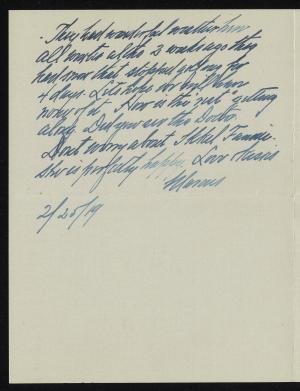 . They had wonderful weather here
all winter altho 2 weeks ago they
had snow that stopped going for
4 days. Lets hope we don't have
more of it. How is the girl getting
along. Did you see the Doctor.
Don't worry about Fannie.
She is perfectly happy. Love
2/25/19